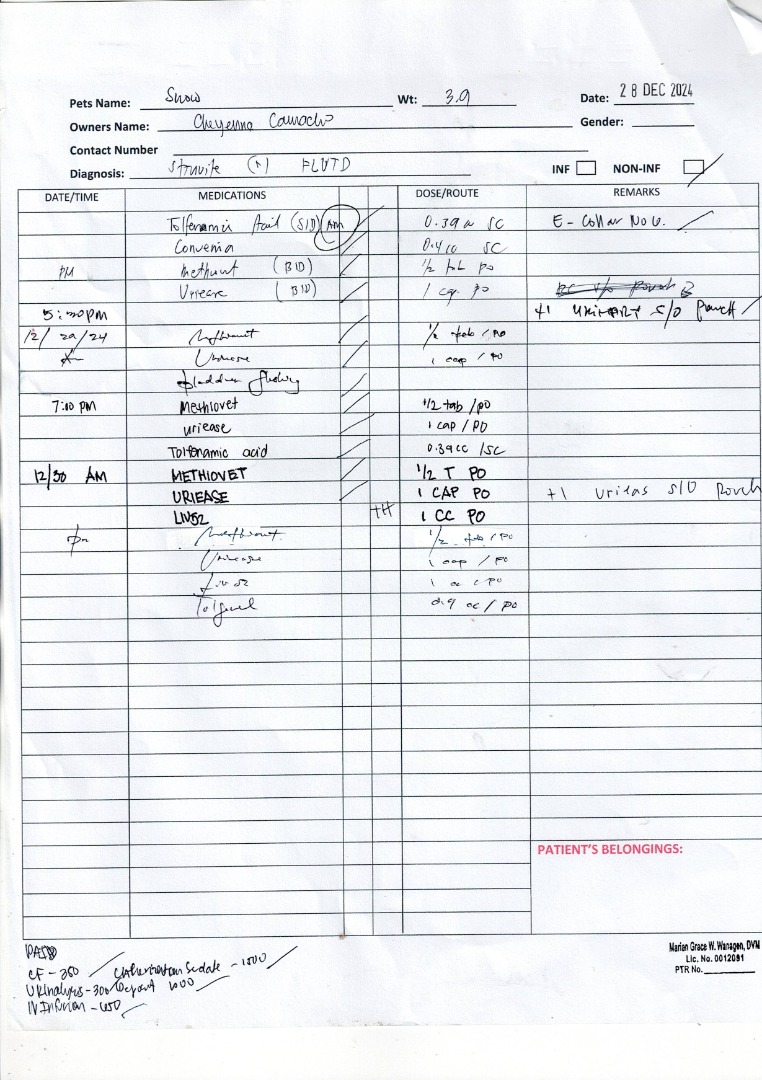 Pets Name: Snow Wt: 3.9 Date: 28 DEC 2024
Owners Name: Cheyenne Camacho Gender:
Contact Number
Diagnosis: Struvite (+) FLUTD INF NON-INF
DATE/TIME MEDICATIONS DOSE/ROUTE REMARKS
Tolfenamic Acid (SID) AM 0.39 SC E-Collar No 6.
Convenia 0.4 SC
PM (BID) 1/2 PO
Uriease (BID) 1 cap PO
5:30pm +1 URINARY S/O Pouch
12/29/24 1/2 tab / PO
Uriease 1 cap / PO
bladder flushing
7:00 PM Methiovet 1/2 tab / PO
uriease 1 cap / PO
Tolfenamic acid 0.39cc /SC
12/30 AM METHIOVET 1/2 T PO
URIEASE 1 CAP PO +1 S/O Pouch
LIV52 TH 1 CC PO
pm 1/2 tab / PO
Uriease 1 cap / PO
Liv 52 1 cc / PO
Tolfenol 0.9 cc / PO
PATIENT'S BELONGINGS:
Marian Grace W. Wanagen, DVM
Lic. No. 0012081
PTR No.
PAID
CF - 350 Catheterization Sedate - 1500
Urinalysis - 300 Deposit 1000
IV Infusion - 650